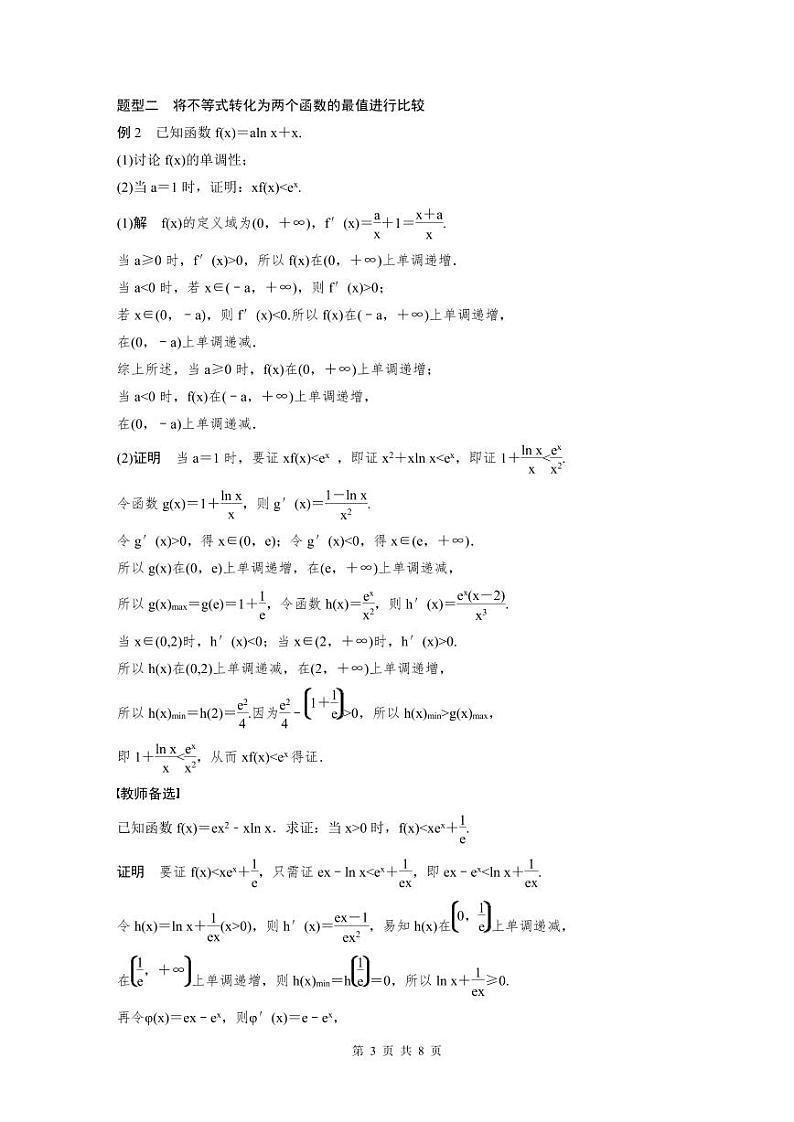 题型二　将不等式转化为两个函数的最值进行比较
例2　已知函数 f(x)=aln x+x.
(1)讨论 f(x)的单调性;
(2)当 a=1 时，证明：xf(x)<eˣ.
(1)解　f(x)的定义域为(0，+∞)，f′(x)=a/x+1=(x+a)/x.
当 a≥0 时，f′(x)>0，所以 f(x)在(0，+∞)上单调递增.
当 a<0 时，若 x∈(-a，+∞)，则 f′(x)>0;
若 x∈(0，-a)，则 f′(x)<0.所以 f(x)在(-a，+∞)上单调递增，
在(0，-a)上单调递减.
综上所述，当 a≥0 时，f(x)在(0，+∞)上单调递增;
当 a<0 时，f(x)在(-a，+∞)上单调递增，
在(0，-a)上单调递减.
(2)证明　当 a=1 时，要证 xf(x)<eˣ ，即证 x²+xln x<eˣ，即证 1+ln x/x<eˣ/x².
令函数 g(x)=1+ln x/x，则 g′(x)=(1-ln x)/x².
令 g′(x)>0，得 x∈(0，e)；令 g′(x)<0，得 x∈(e，+∞).
所以 g(x)在(0，e)上单调递增，在(e，+∞)上单调递减，
所以 g(x)max=g(e)=1+1/e，令函数 h(x)=eˣ/x²，则 h′(x)=eˣ(x-2)/x³.
当 x∈(0,2)时，h′(x)<0；当 x∈(2，+∞)时，h′(x)>0.
所以 h(x)在(0,2)上单调递减，在(2，+∞)上单调递增，
所以 h(x)min=h(2)=e²/4.因为e²/4-(1+1/e)>0，所以 h(x)min>g(x)max，
即 1+ln x/x<eˣ/x²，从而 xf(x)<eˣ得证.
【教师备选】
已知函数 f(x)=ex²-xln x．求证：当 x>0 时，f(x)<xeˣ+1/e.
证明　要证 f(x)<xeˣ+1/e，只需证 ex-ln x<eˣ+1/ex，即 ex-eˣ<ln x+1/ex.
令 h(x)=ln x+1/ex(x>0)，则 h′(x)=(ex-1)/ex²，易知 h(x)在(0，1/e)上单调递减，
在(1/e，+∞)上单调递增，则 h(x)min=h(1/e)=0，所以 ln x+1/ex≥0.
再令φ(x)=ex-eˣ，则φ′(x)=e-eˣ，
第 3 页 共 8 页